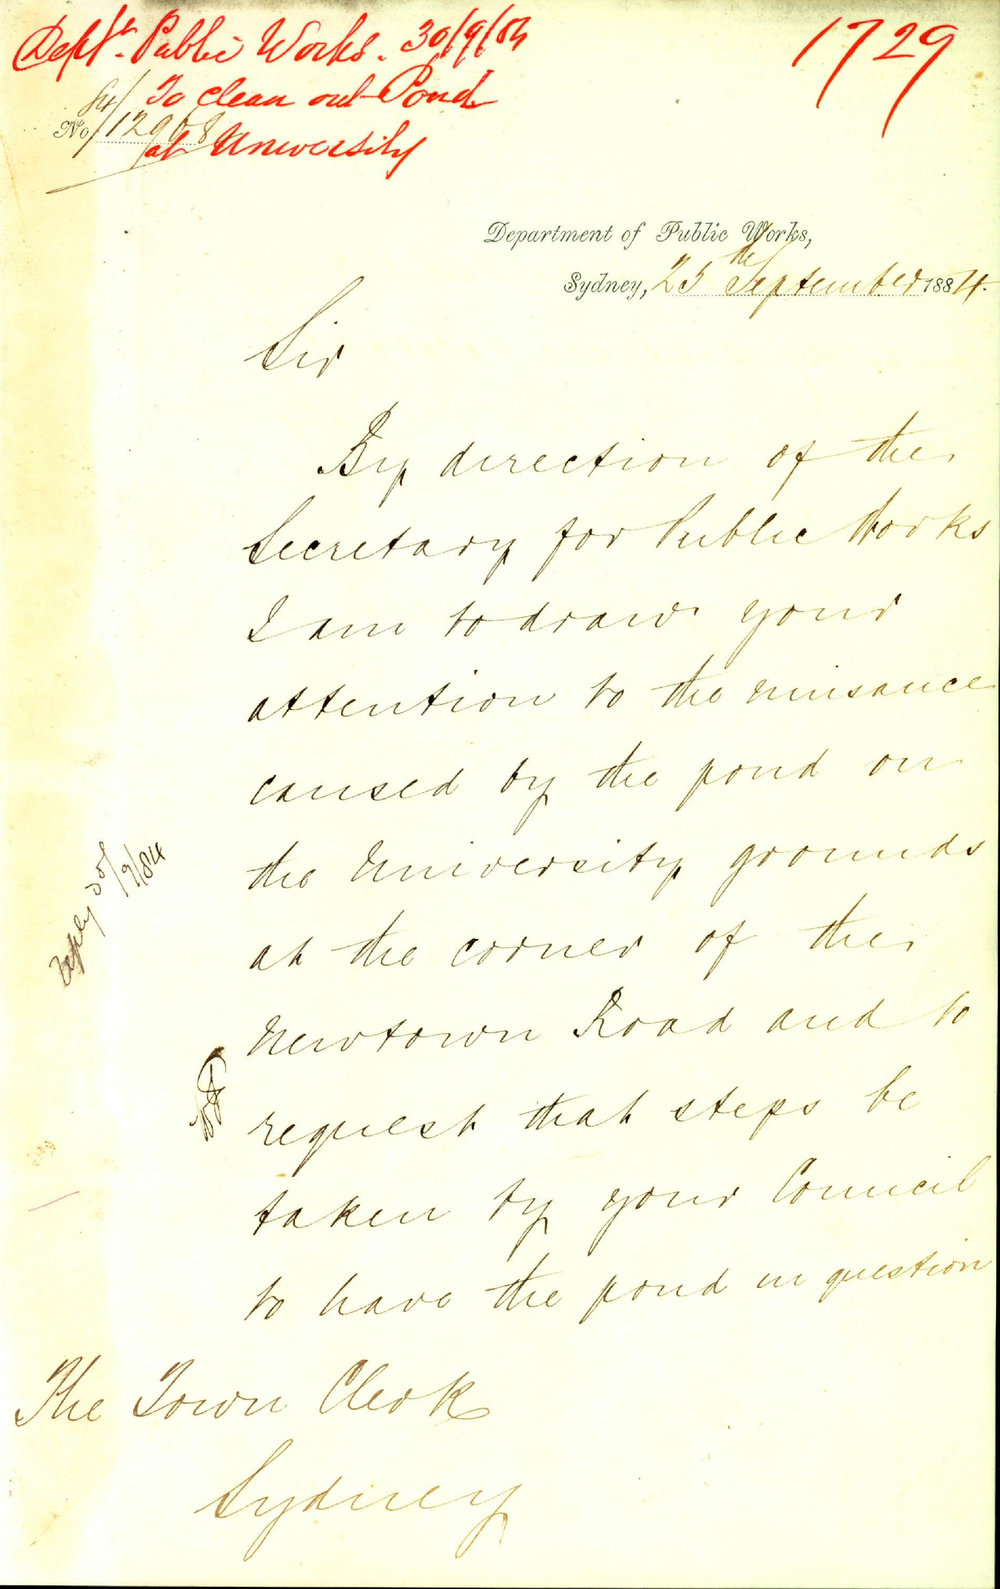 Dept. Public Works. 30/9/84
1729
To clean out Pond
84/
No 12968
at University
Department of Public Works,
Sydney, 25th September 1884.
Sir
By direction of the
Secretary for Public Works
I am to draw your
attention to the nuisance
caused by the pond on
the University grounds
at the corner of the
Newtown Road and to
request that steps be
taken by your Council
to have the pond in question
Reply 30/9/84
The Town Clerk
Sydney